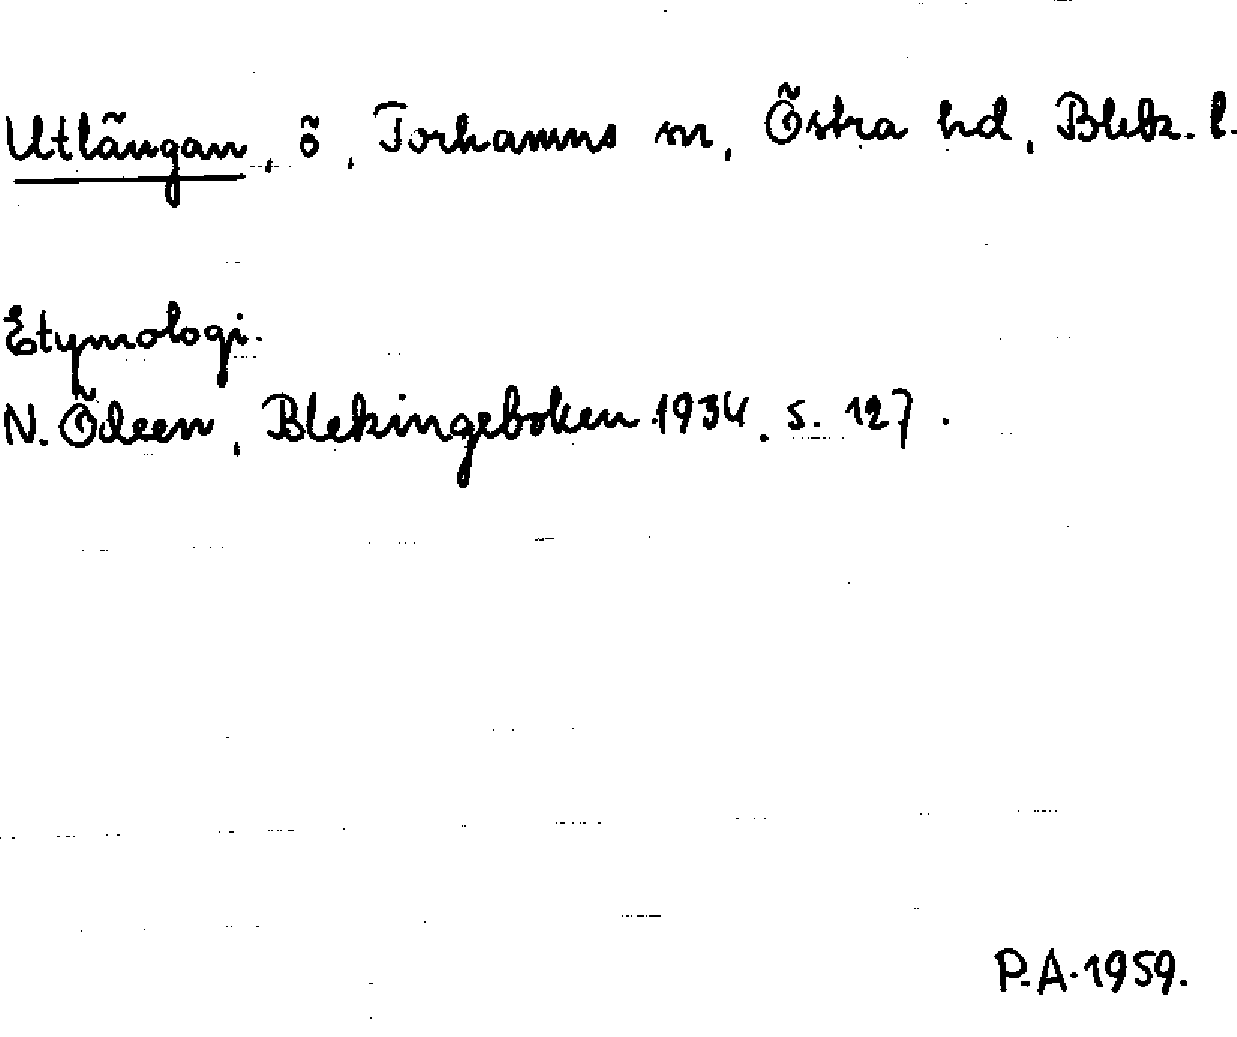 Utlängan, ö, Torhamns sn, Östra hd, Blek. l.
Etymologi.
N. Ödeen, Blekingeboken 1934. s. 127.
P.A. 1959.